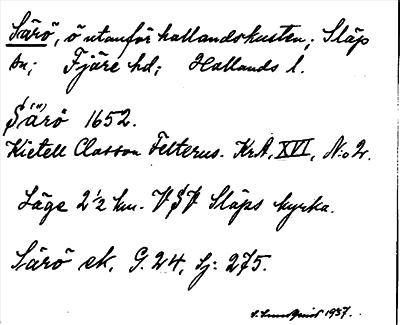 Särö, ö utanför hallandskusten; Släp
sn; Fjäre hd; Hallands l.
Särö 1652.
Kietell Classon Felterus. KrA, XVI, No 2.
Läge 2 1/2 km. VSV Släps kyrka.
Särö ek. G. 24, Sj: 275.
S. Lundquist 1937.